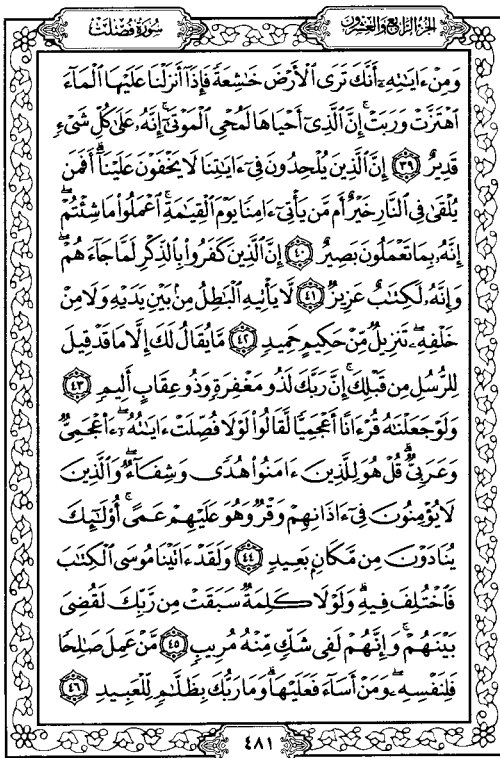 سُورَةُ فُصِّلَتْ
الجُزْءُ الرَّابِعُ وَالعِشْرُونَ
وَمِنْ ءَايَٰتِهِۦٓ أَنَّكَ تَرَى ٱلْأَرْضَ خَٰشِعَةً فَإِذَآ أَنزَلْنَا عَلَيْهَا ٱلْمَآءَ
ٱهْتَزَّتْ وَرَبَتْ ۚ إِنَّ ٱلَّذِىٓ أَحْيَاهَا لَمُحْىِ ٱلْمَوْتَىٰٓ ۚ إِنَّهُۥ عَلَىٰ كُلِّ شَىْءٍ
قَدِيرٌ ٣٩ إِنَّ ٱلَّذِينَ يُلْحِدُونَ فِىٓ ءَايَٰتِنَا لَا يَخْفَوْنَ عَلَيْنَآ ۗ أَفَمَن
يُلْقَىٰ فِى ٱلنَّارِ خَيْرٌ أَم مَّن يَأْتِىٓ ءَامِنًا يَوْمَ ٱلْقِيَٰمَةِ ۚ ٱعْمَلُوا۟ مَا شِئْتُمْ ۖ
إِنَّهُۥ بِمَا تَعْمَلُونَ بَصِيرٌ ٤٠ إِنَّ ٱلَّذِينَ كَفَرُوا۟ بِٱلذِّكْرِ لَمَّا جَآءَهُمْ ۖ
وَإِنَّهُۥ لَكِتَٰبٌ عَزِيزٌ ٤١ لَّا يَأْتِيهِ ٱلْبَٰطِلُ مِنۢ بَيْنِ يَدَيْهِ وَلَا مِنْ
خَلْفِهِۦ ۖ تَنزِيلٌ مِّنْ حَكِيمٍ حَمِيدٍ ٤٢ مَّا يُقَالُ لَكَ إِلَّا مَا قَدْ قِيلَ
لِلرُّسُلِ مِن قَبْلِكَ ۚ إِنَّ رَبَّكَ لَذُو مَغْفِرَةٍ وَذُو عِقَابٍ أَلِيمٍ ٤٣
وَلَوْ جَعَلْنَٰهُ قُرْءَانًا أَعْجَمِيًّا لَّقَالُوا۟ لَوْلَا فُصِّلَتْ ءَايَٰتُهُۥٓ ۖ ءَا۬عْجَمِىٌّ
وَعَرَبِىٌّ ۗ قُلْ هُوَ لِلَّذِينَ ءَامَنُوا۟ هُدًى وَشِفَآءٌ ۖ وَٱلَّذِينَ
لَا يُؤْمِنُونَ فِىٓ ءَاذَانِهِمْ وَقْرٌ وَهُوَ عَلَيْهِمْ عَمًى ۚ أُو۟لَٰٓئِكَ
يُنَادَوْنَ مِن مَّكَانٍۭ بَعِيدٍ ٤٤ وَلَقَدْ ءَاتَيْنَا مُوسَى ٱلْكِتَٰبَ
فَٱخْتُلِفَ فِيهِ ۗ وَلَوْلَا كَلِمَةٌ سَبَقَتْ مِن رَّبِّكَ لَقُضِىَ
بَيْنَهُمْ ۚ وَإِنَّهُمْ لَفِى شَكٍّ مِّنْهُ مُرِيبٍ ٤٥ مَّنْ عَمِلَ صَٰلِحًا
فَلِنَفْسِهِۦ ۖ وَمَنْ أَسَآءَ فَعَلَيْهَا ۗ وَمَا رَبُّكَ بِظَلَّٰمٍ لِّلْعَبِيدِ ٤٦
٤٨١